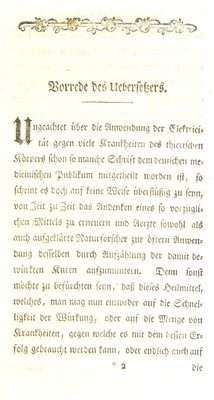 Vorrede des Uebersetzers.
Ungeachtet über die Anwendung der Elektrici-
tät gegen viele Krankheiten des thierischen
Körpers schon so manche Schrift dem deutschen me-
dicinischen Publikum mitgetheilt worden ist, so
scheint es doch auf keine Weise überflüßig zu seyn,
von Zeit zu Zeit das Andenken eines so vorzügli-
chen Mittels zu erneuern und Aerzte sowohl als
auch aufgeklärte Naturforscher zur öftern Anwen-
dung desselben durch Aufzählung der damit be-
würkten Kuren aufzumuntern. Denn sonst
möchte zu befürchten seyn, daß dieses Heilmittel,
welches, man mag nun entweder auf die Schnel-
ligkeit der Würkung, oder auf die Menge von
Krankheiten, gegen welche es mit dem besten Er-
folg gebraucht werden kann, oder endlich auch auf
* 2 die